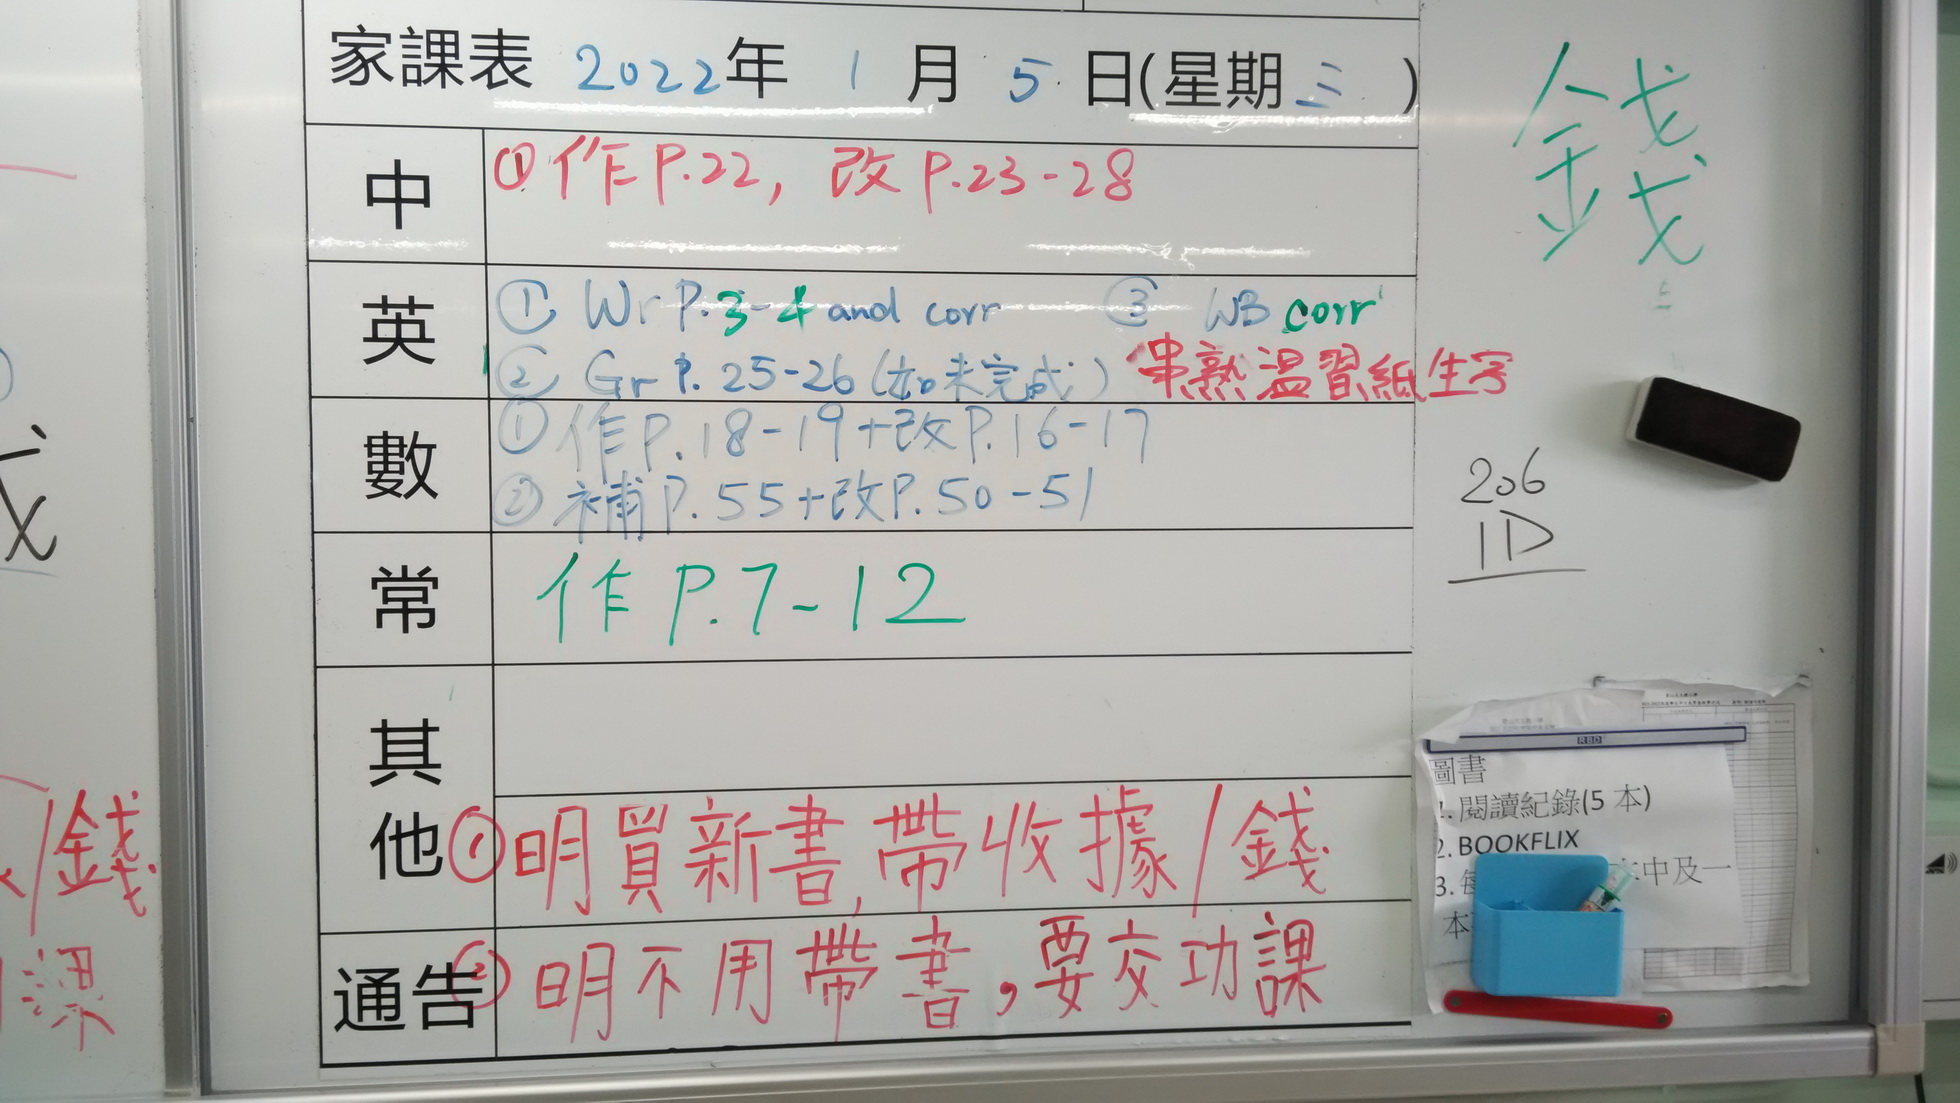 家課表 2022年 1月5日(星期三)
中
①作P.22, 改P.23-28
英
① Wr P.3-4 and corr ③ WB corr
② Gr P.25-26 (如未完成) 串熟溫習紙生字
數
①作P.18-19+改P.16-17
②補P.55+改P.50-51
常
作P.7-12
其他
①明買新書,帶收據/錢
通告
②明不用帶書,要交功課
錢
206
1D
RBD
圖書
1. 閱讀紀錄(5 本)
2. BOOKFLIX
3. 每
本中及一
本
/錢
課